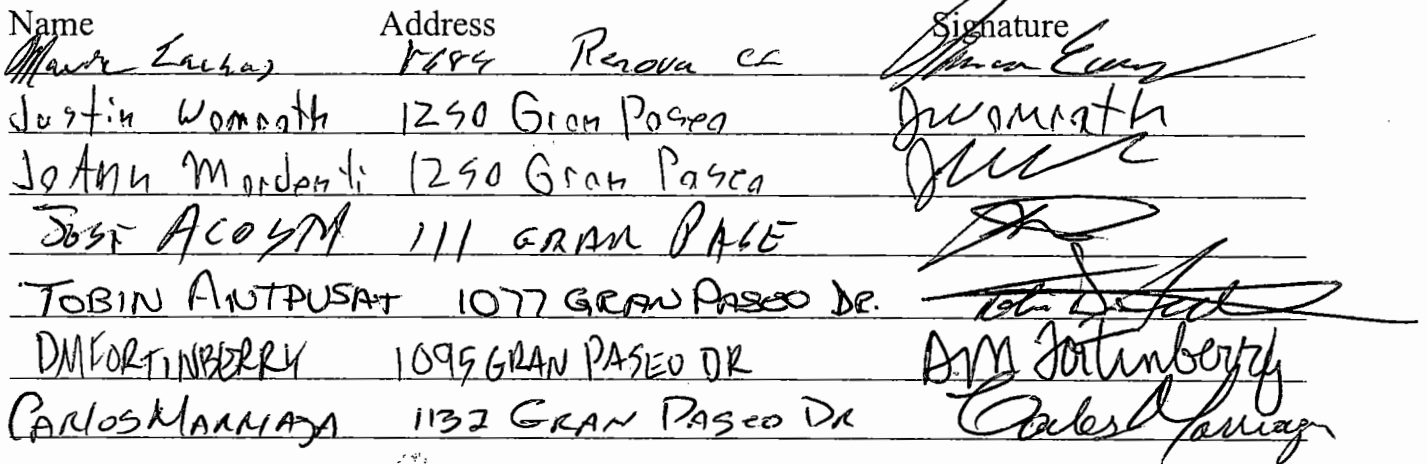 Name Address Signature
Renova
Justin Womrath 1250 Gran Paseo JWomrath
JoAnn Mordenti 1250 Gran Paseo
JOSE ACOSTA 111 GRAN PASE
TOBIN 1077 GRAN PASEO DR.
DMFORTINBERRY 1095 GRAN PASEO DR D.M Fortinberry
CARLOS MARRIAGA 1132 GRAN PASEO DR Carlos Marriaga